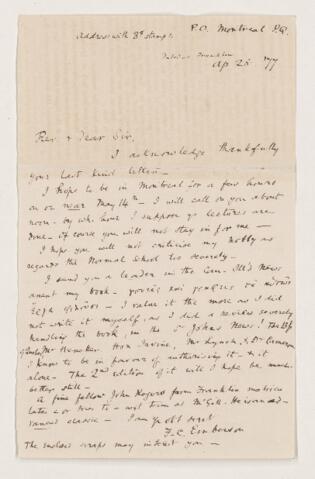 P.O. Montreal P.Q.
Address with 3ᶜ stamp.
Franklin
Ap 23 /77
Rev. & Dear Sir,
I acknowledge thankfully
your last kind letter —
I hope to be in Montreal for a few hours
on or near May 14th — I will call on you about
noon — by wh. hour I suppose yr lectures are
done — Of course you will not stay in for me —
I hope you will not criticise my hobby as
regards the Normal School too severely —
I send you a leader in the Can. Ill'd News
anent my book —
I value it the more as I did
not write it myself, as I did a review severely
handling the book, in the St Johns News! The Bp
Mr Hunter, Irvine, Mr Lynch, & Dr Cameron
I know to be in favour of authorising it — & it
alone — The 2nd edition of it will I hope be much
better still —
A fine fellow John Rogers from Franklin matricu
lates — or tries to — next term at McGill. He is an ad-
vanced classic — I am yr obt servt
F. C. Emberson
The enclosed scraps may interest you —